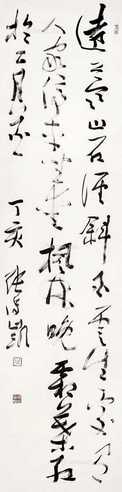 遠上寒山石徑斜白雲生處有
人家停車坐愛楓林晚霜葉紅
於二月花
丁亥